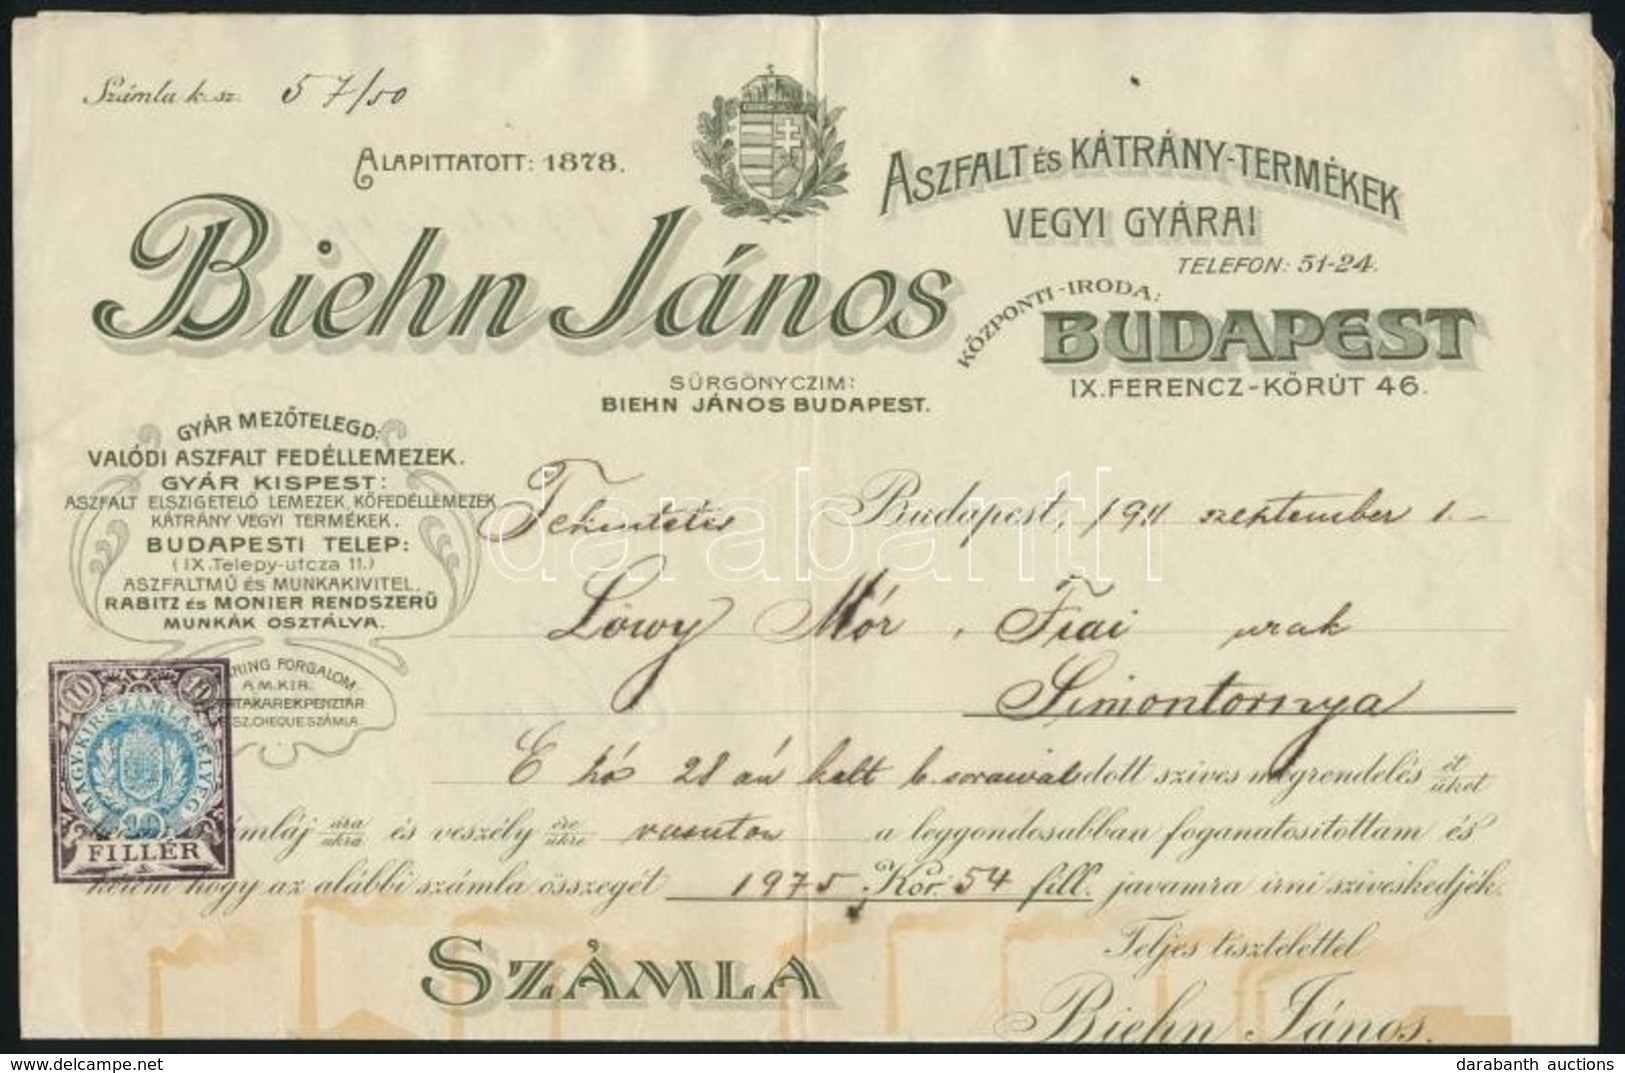 Számla k. sz. 57/50
ALAPITTATOTT: 1878.
ASZFALT ÉS KÁTRÁNY-TERMÉKEK
VEGYI GYÁRAI
TELEFON: 51-24.
Biehn János
KÖZPONTI-IRODA:
BUDAPEST
IX. FERENCZ-KÖRÚT 46.
SÜRGÖNYCZIM:
BIEHN JÁNOS BUDAPEST.
GYÁR MEZŐTELEGD:
VALÓDI ASZFALT FEDÉLLEMEZEK.
GYÁR KISPEST:
ASZFALT ELSZIGETELŐ LEMEZEK, KŐFEDÉLLEMEZEK
KÁTRÁNY VEGYI TERMÉKEK.
BUDAPESTI TELEP:
(IX. Telepy-utcza 11.)
ASZFALTMŰ ÉS MUNKAKIVITEL.
RABITZ ÉS MONIER RENDSZERŰ
MUNKÁK OSZTÁLYA.
RING FORGALOM
A M. KIR.
TAKARÉKPÉNZTÁR
SZ. CHEQUE SZÁMLA
Tekintetes Budapest, 1911 szeptember 1.-
Löwy Mór Fiai urak
Simontornya
E hó 28 án kelt b. soraival adott szives megrendelés ét üket
számláj ára ukra és veszély ére ükre vasuton a leggondosabban foganatosítottam és
kérem hogy az alábbi számla összegét 1975 Kor. 54 fill. javamra irni sziveskedjék.
10 10
MAGY. KIR. SZÁMLA-BÉLYEG
FILLÉR
Teljes tisztelettel
SZÁMLA
Biehn János.
darabanth
darabanth auctions